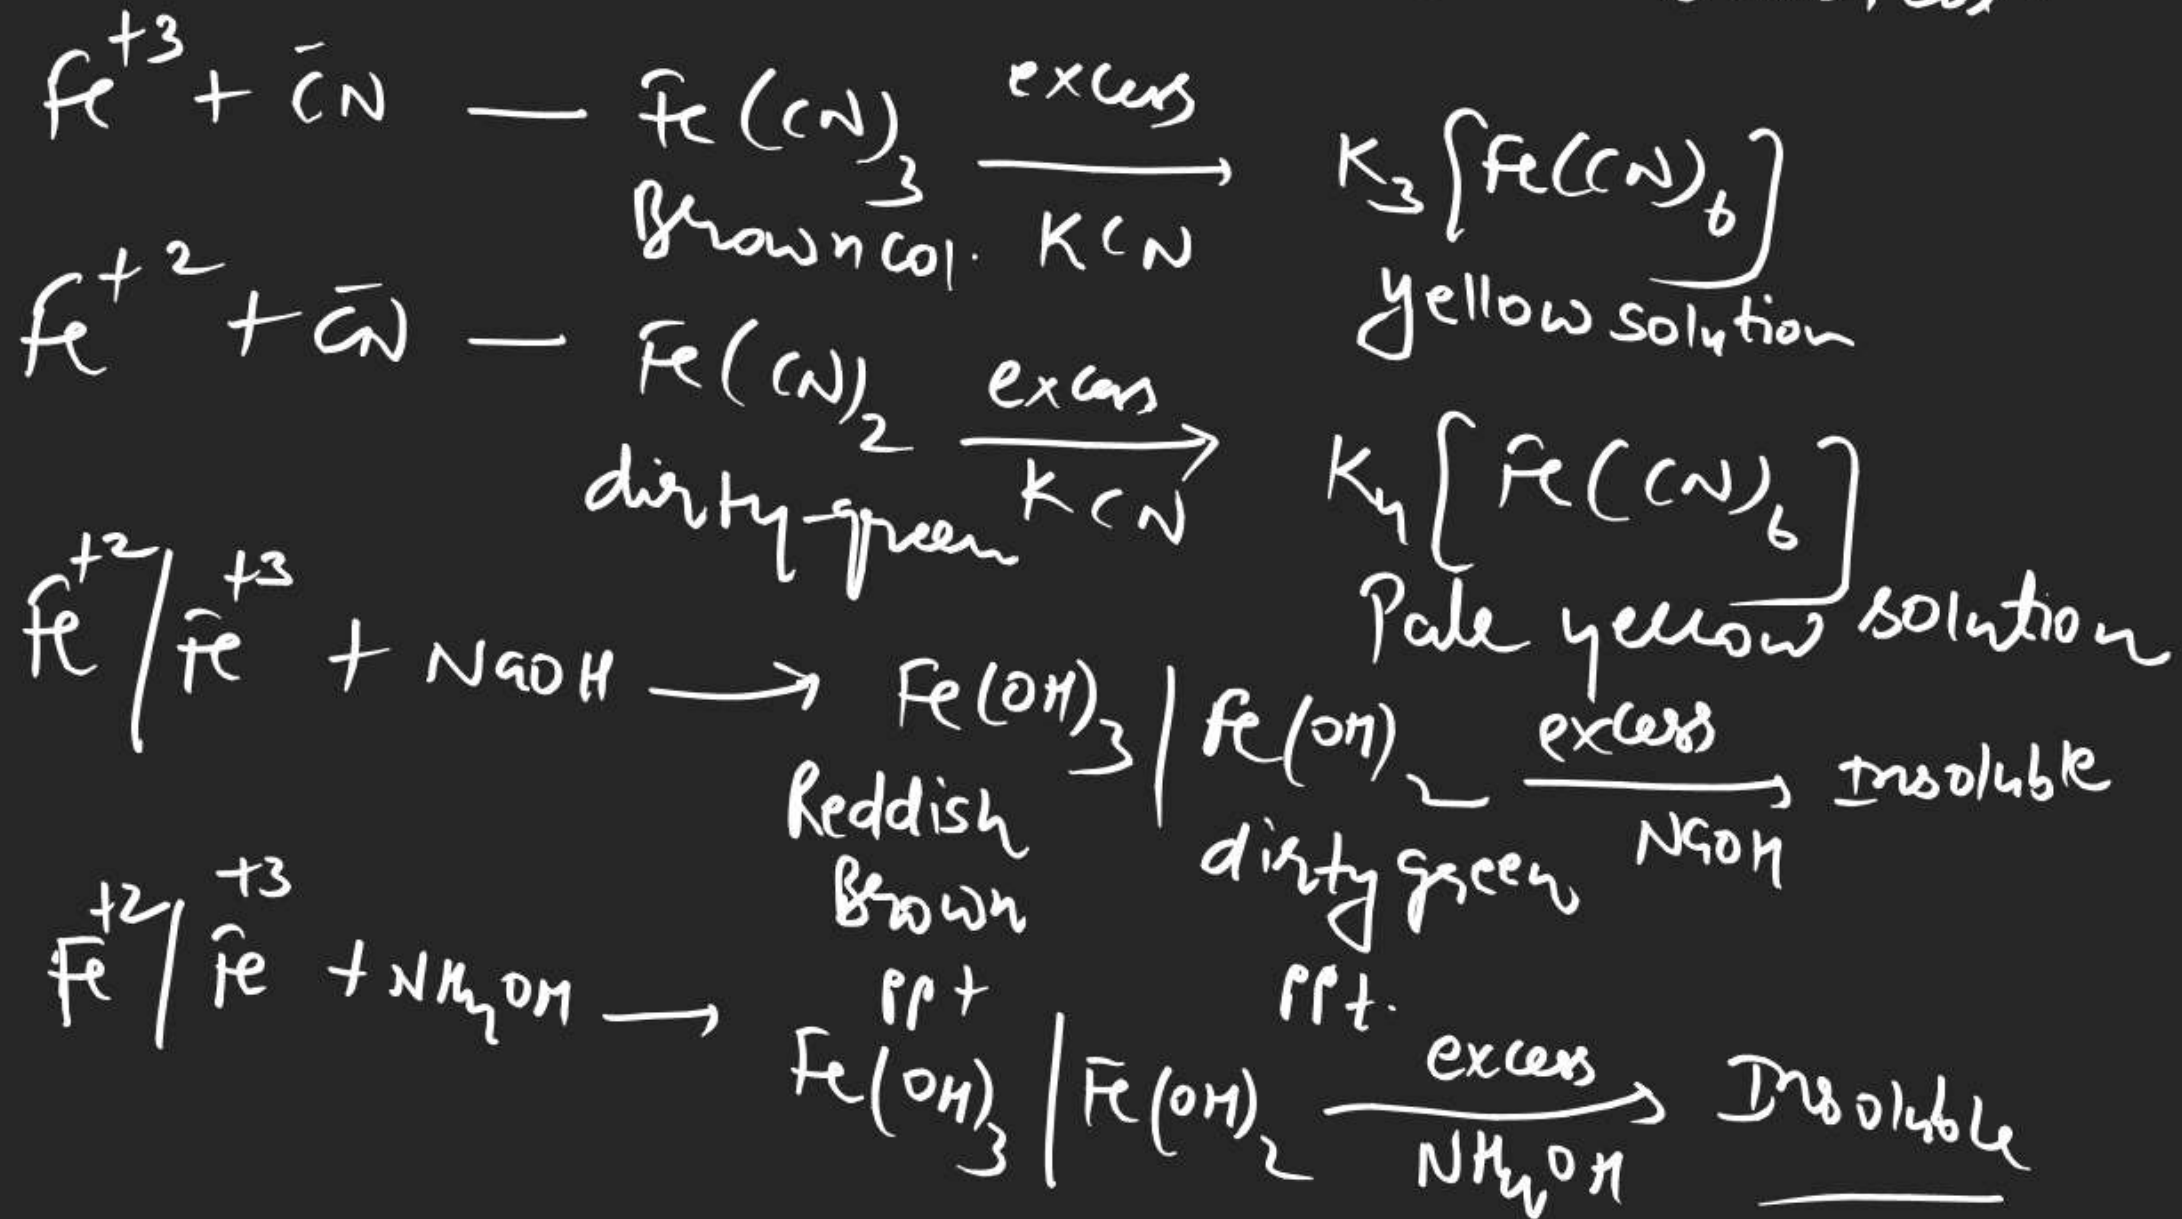 Fe+3 + C̄N — Fe(CN)3 excess KCN → K3[Fe(CN)6]
Brown col. yellow solution
Fe+2 + C̄N — Fe(CN)2 excess KCN → K4[Fe(CN)6]
dirty green Pale yellow solution
Fe+2 / Fe+3 + NaOH → Fe(OH)3 | Fe(OH)2 excess NaOH → Insoluble
Reddish Brown ppt dirty green ppt.
Fe+2 / Fe+3 + NH4OH → Fe(OH)3 | Fe(OH)2 excess NH4OH → Insoluble